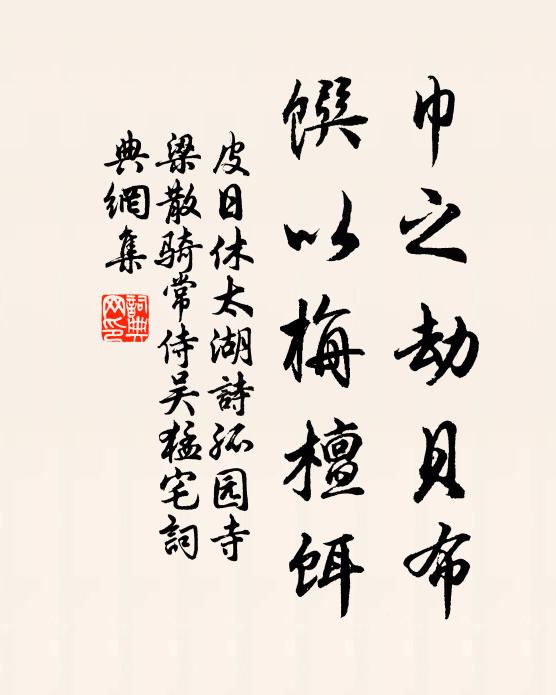 巾之劫貝布
饌以梅檀餌
皮日休太湖詩孤园寺
梁散骑常侍吴猛宅詞
典網集
詞典
网印